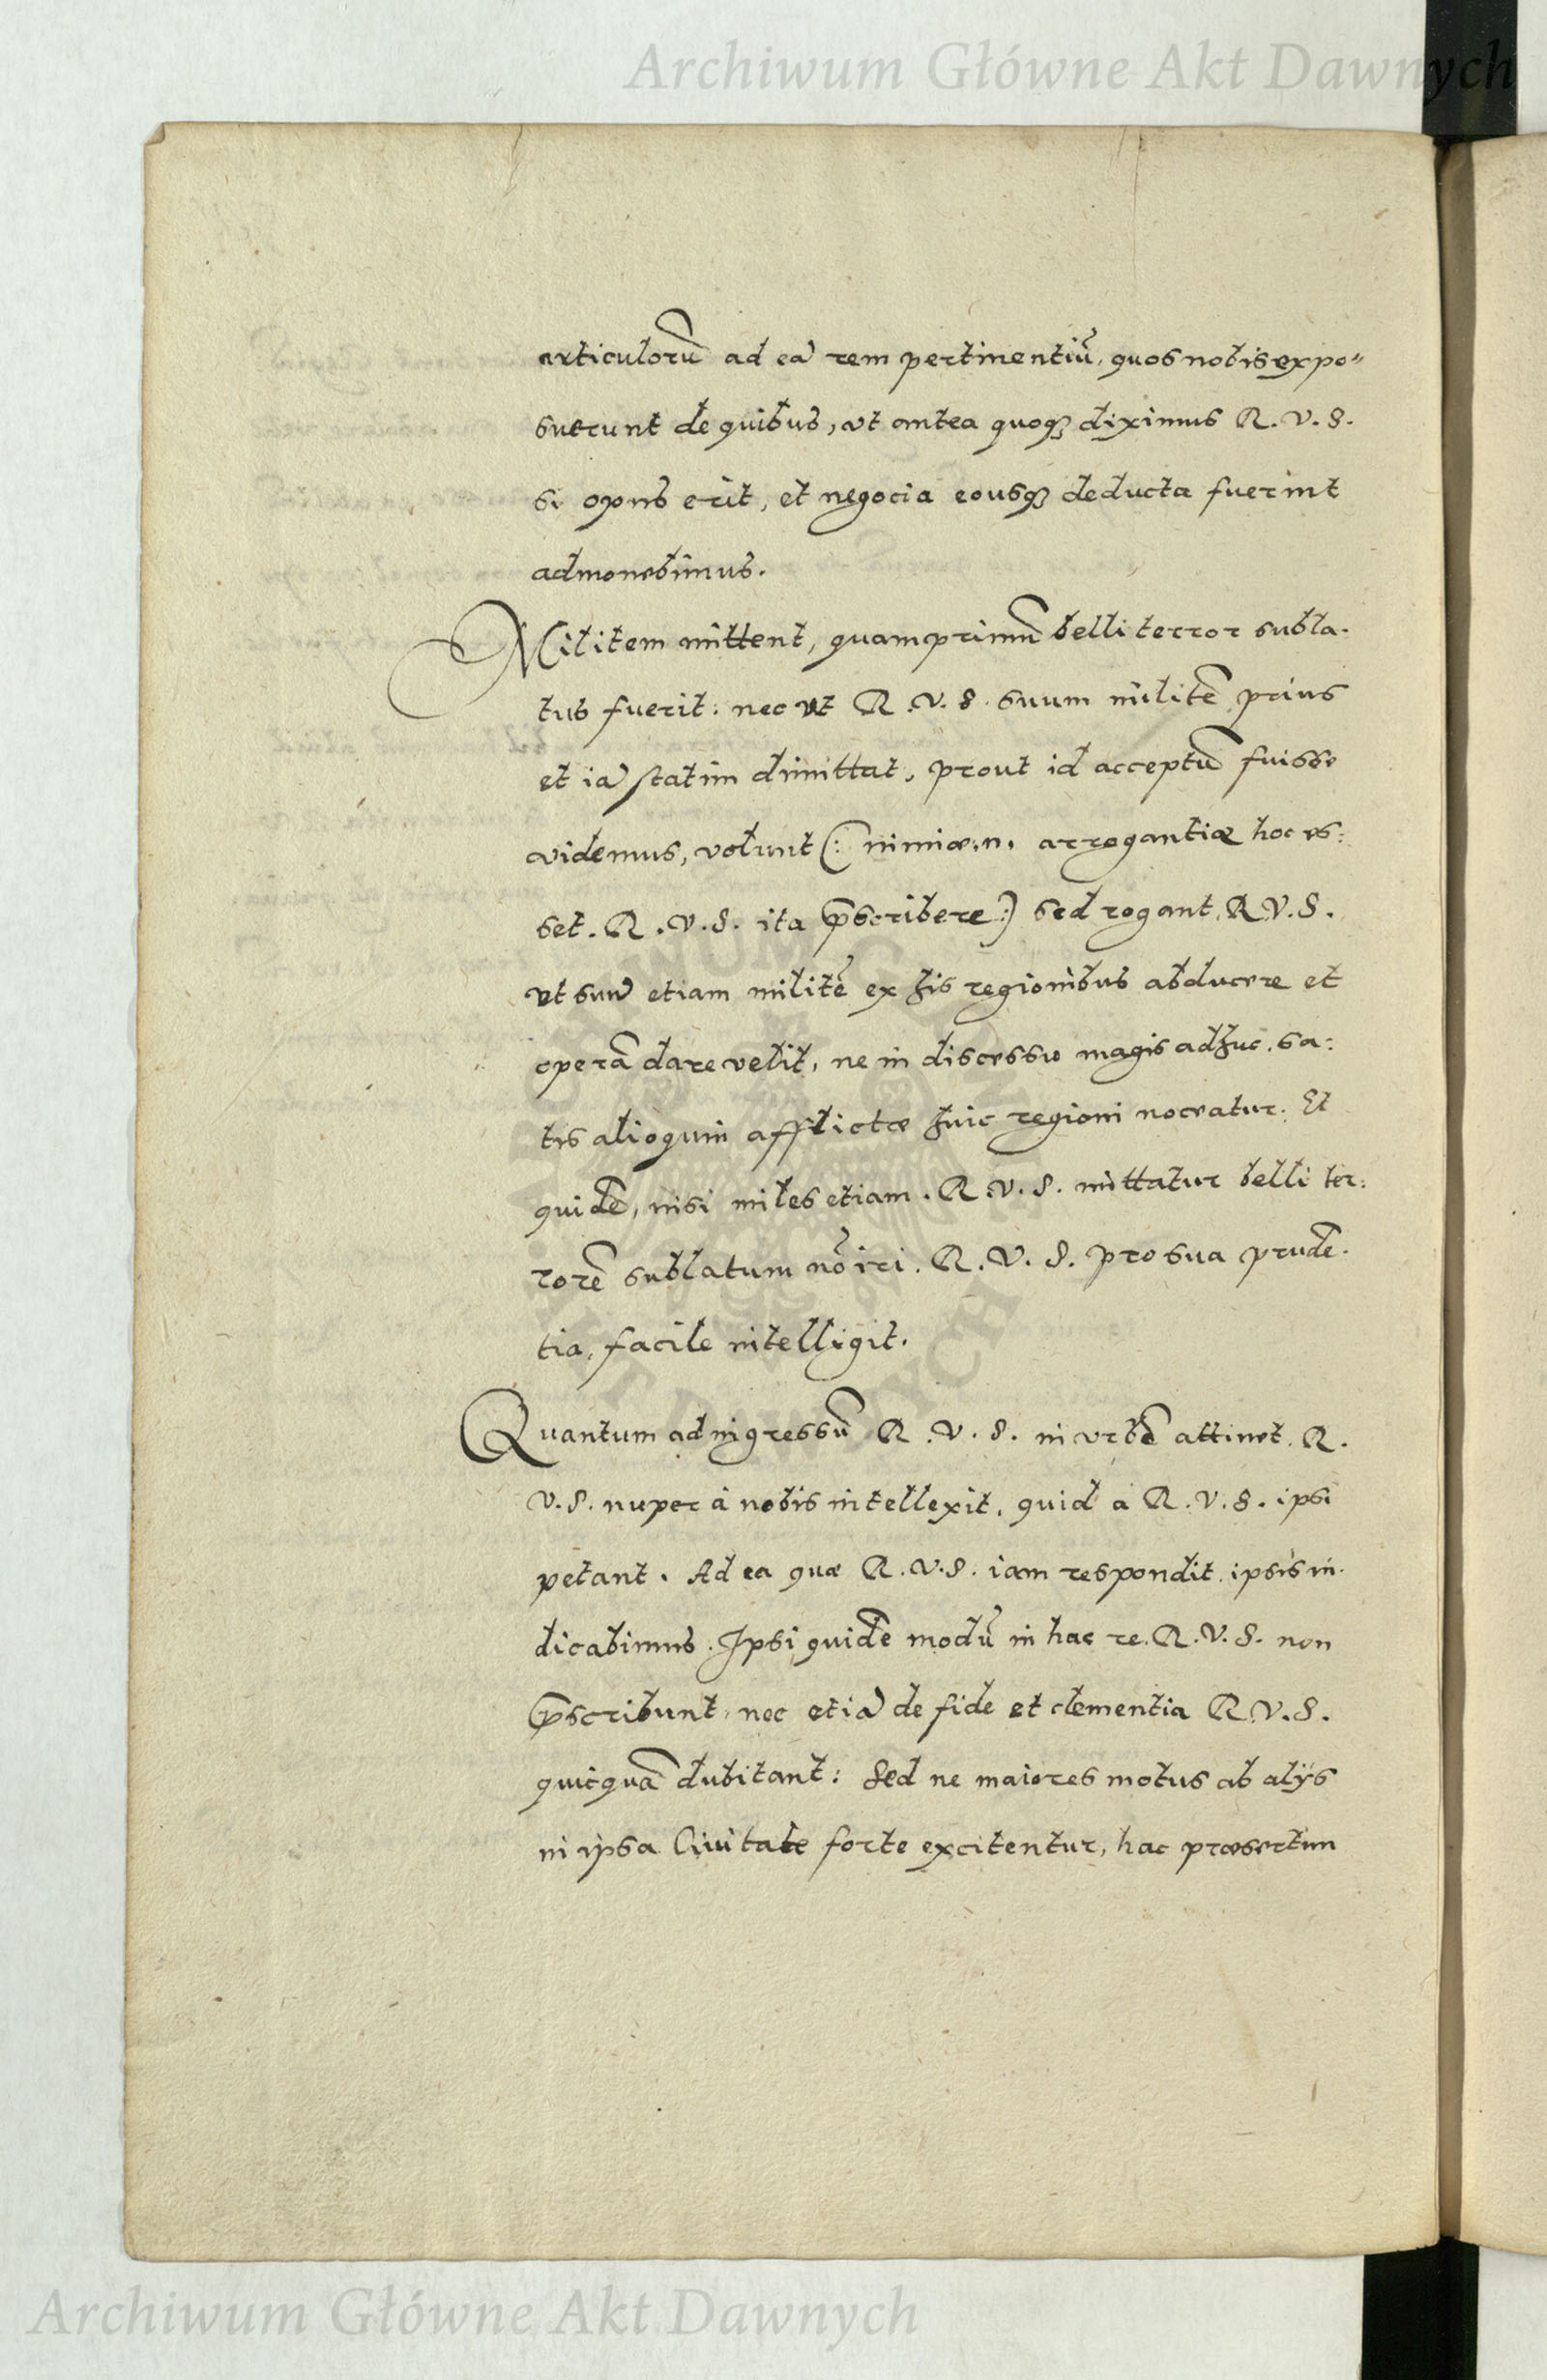 Archiwum Główne Akt Dawnych
articulorũ ad eã rem pertinentiũ, quos nobis expo"
suerunt de quibus, ut antea quoqꝫ diximus R. V. S.
si opus erit, et negocia eousqꝫ deducta fuerint
admonebimus.
Militem mittent, quamprimũ belli terror subla-
tus fuerit: nec ut R. V. S. suum militẽ prius
et iã statim dimittat, prout id acceptũ fuisse
videmus, volunt (: nimiæ .n. arrogantiæ hoc es:
set. R. V. S. ita p̃scribere :) sed rogant R. V. S.
ut suũ etiam militẽ ex his regionibus abducere et
operã dare velit, ne in discessu magis adhuc, sa:
tis alioquin afflictæ huic regioni noceatur. Et
quidẽ, nisi miles etiam. R. V. S. mittatur belli ter:
rorẽ sublatum nõ iri. R. V. S. pro sua prudẽ-
tia, facile intelligit.
Quantum ad ingressũ R. V. S. in urbẽ attinet. R.
V. S. nuper à nobis intellexit, quid à R. V. S. ipsi
petant. Ad ea quæ R. V. S. iam respondit, ipsis in-
dicabimus. Ipsi quidẽ modũ in hac re. R. V. S. non
p̃scribunt, nec etiã de fide et clementia R. V. S.
quicquã dubitant: Sed ne maiores motus ab alijs
in ipsa Civitate forte excitentur, hac præsertim
Archiwum Główne Akt Dawnych